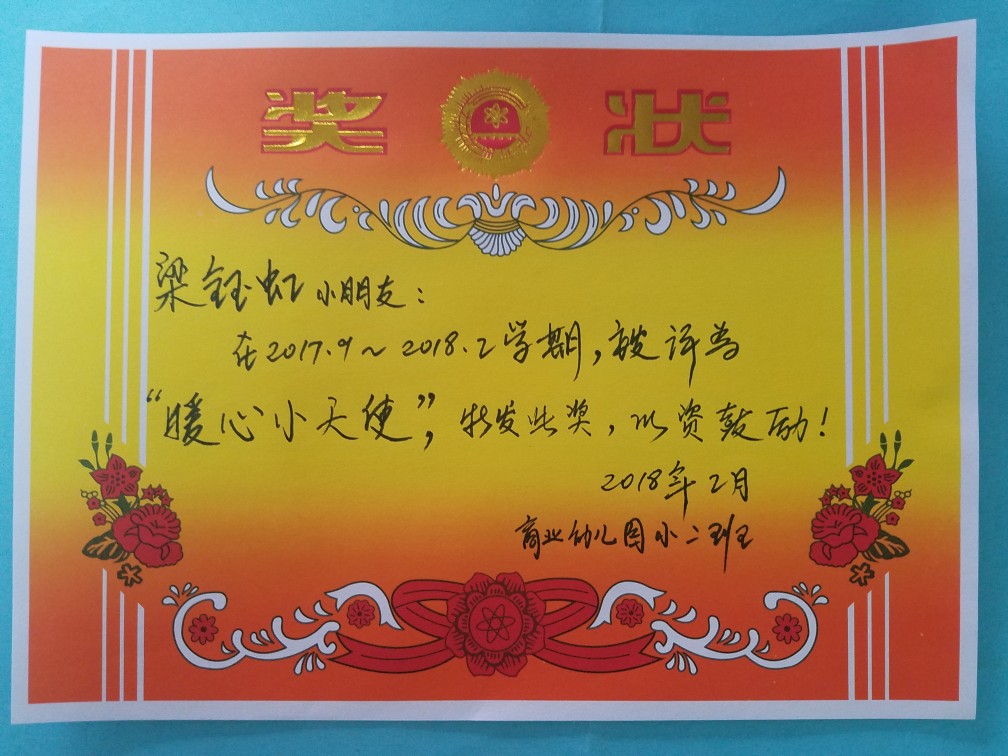 奖状
梁钰虹小朋友：
在2017.9～2018.2学期，被评为
“暖心小天使”，特发此奖，以资鼓励！
2018年2月
商业幼儿园小二班